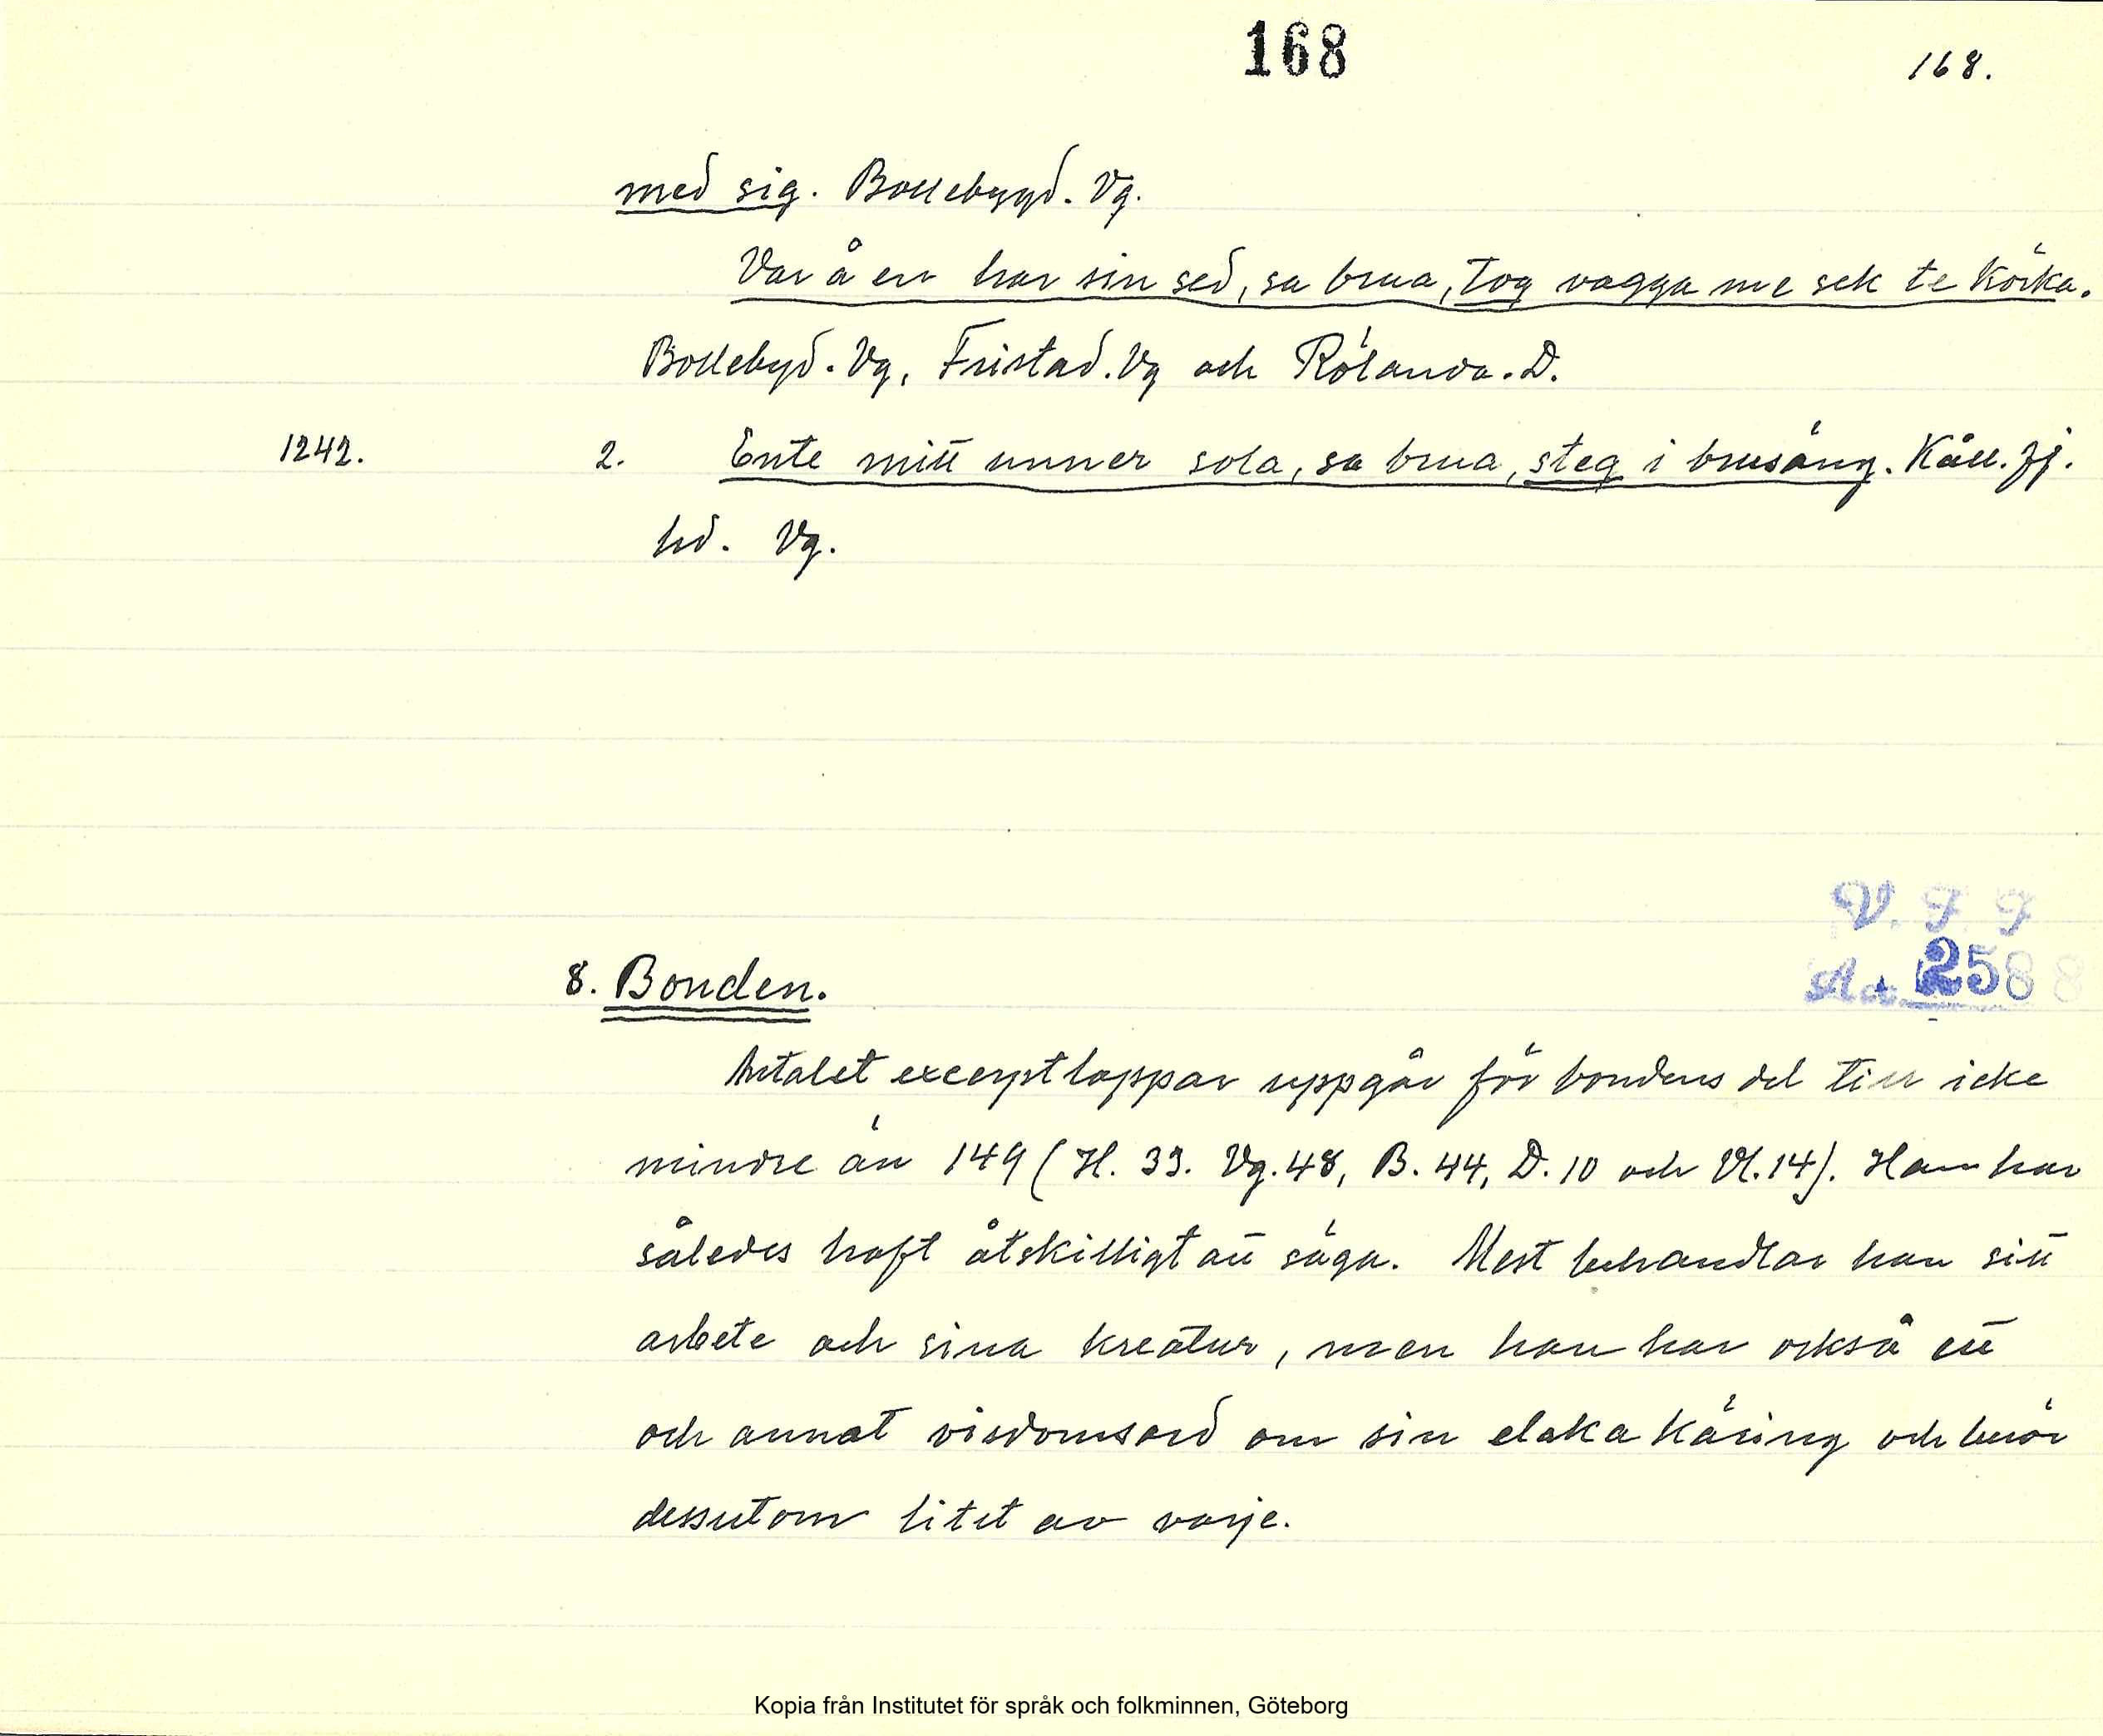 168
168.
med sig. Bollebygd. Vg.
Var å en har sin sed, sa brua, tog vagga me sek te körka.
Bollebyd. Vg, Fristad. Vg och Rölanda. D.
1242. 2. Ente mitt unner sola, sa brua, steg i brusäng. Kåll. fj.
hd. Vg.
V. F F
Acc. 2588
8. Bonden.
Antalet excerptlappar uppgår för bondens del till icke
mindre än 149 (H. 33. Vg. 48, B. 44, D. 10 och Vl. 14). Han har
således haft åtskilligt att säga. Mest behandlar han sitt
arbete och sina kreatur, men han har också ett
och annat visdomsord om sin elaka käring och berör
dessutom litet av varje.
Kopia från Institutet för språk och folkminnen, Göteborg